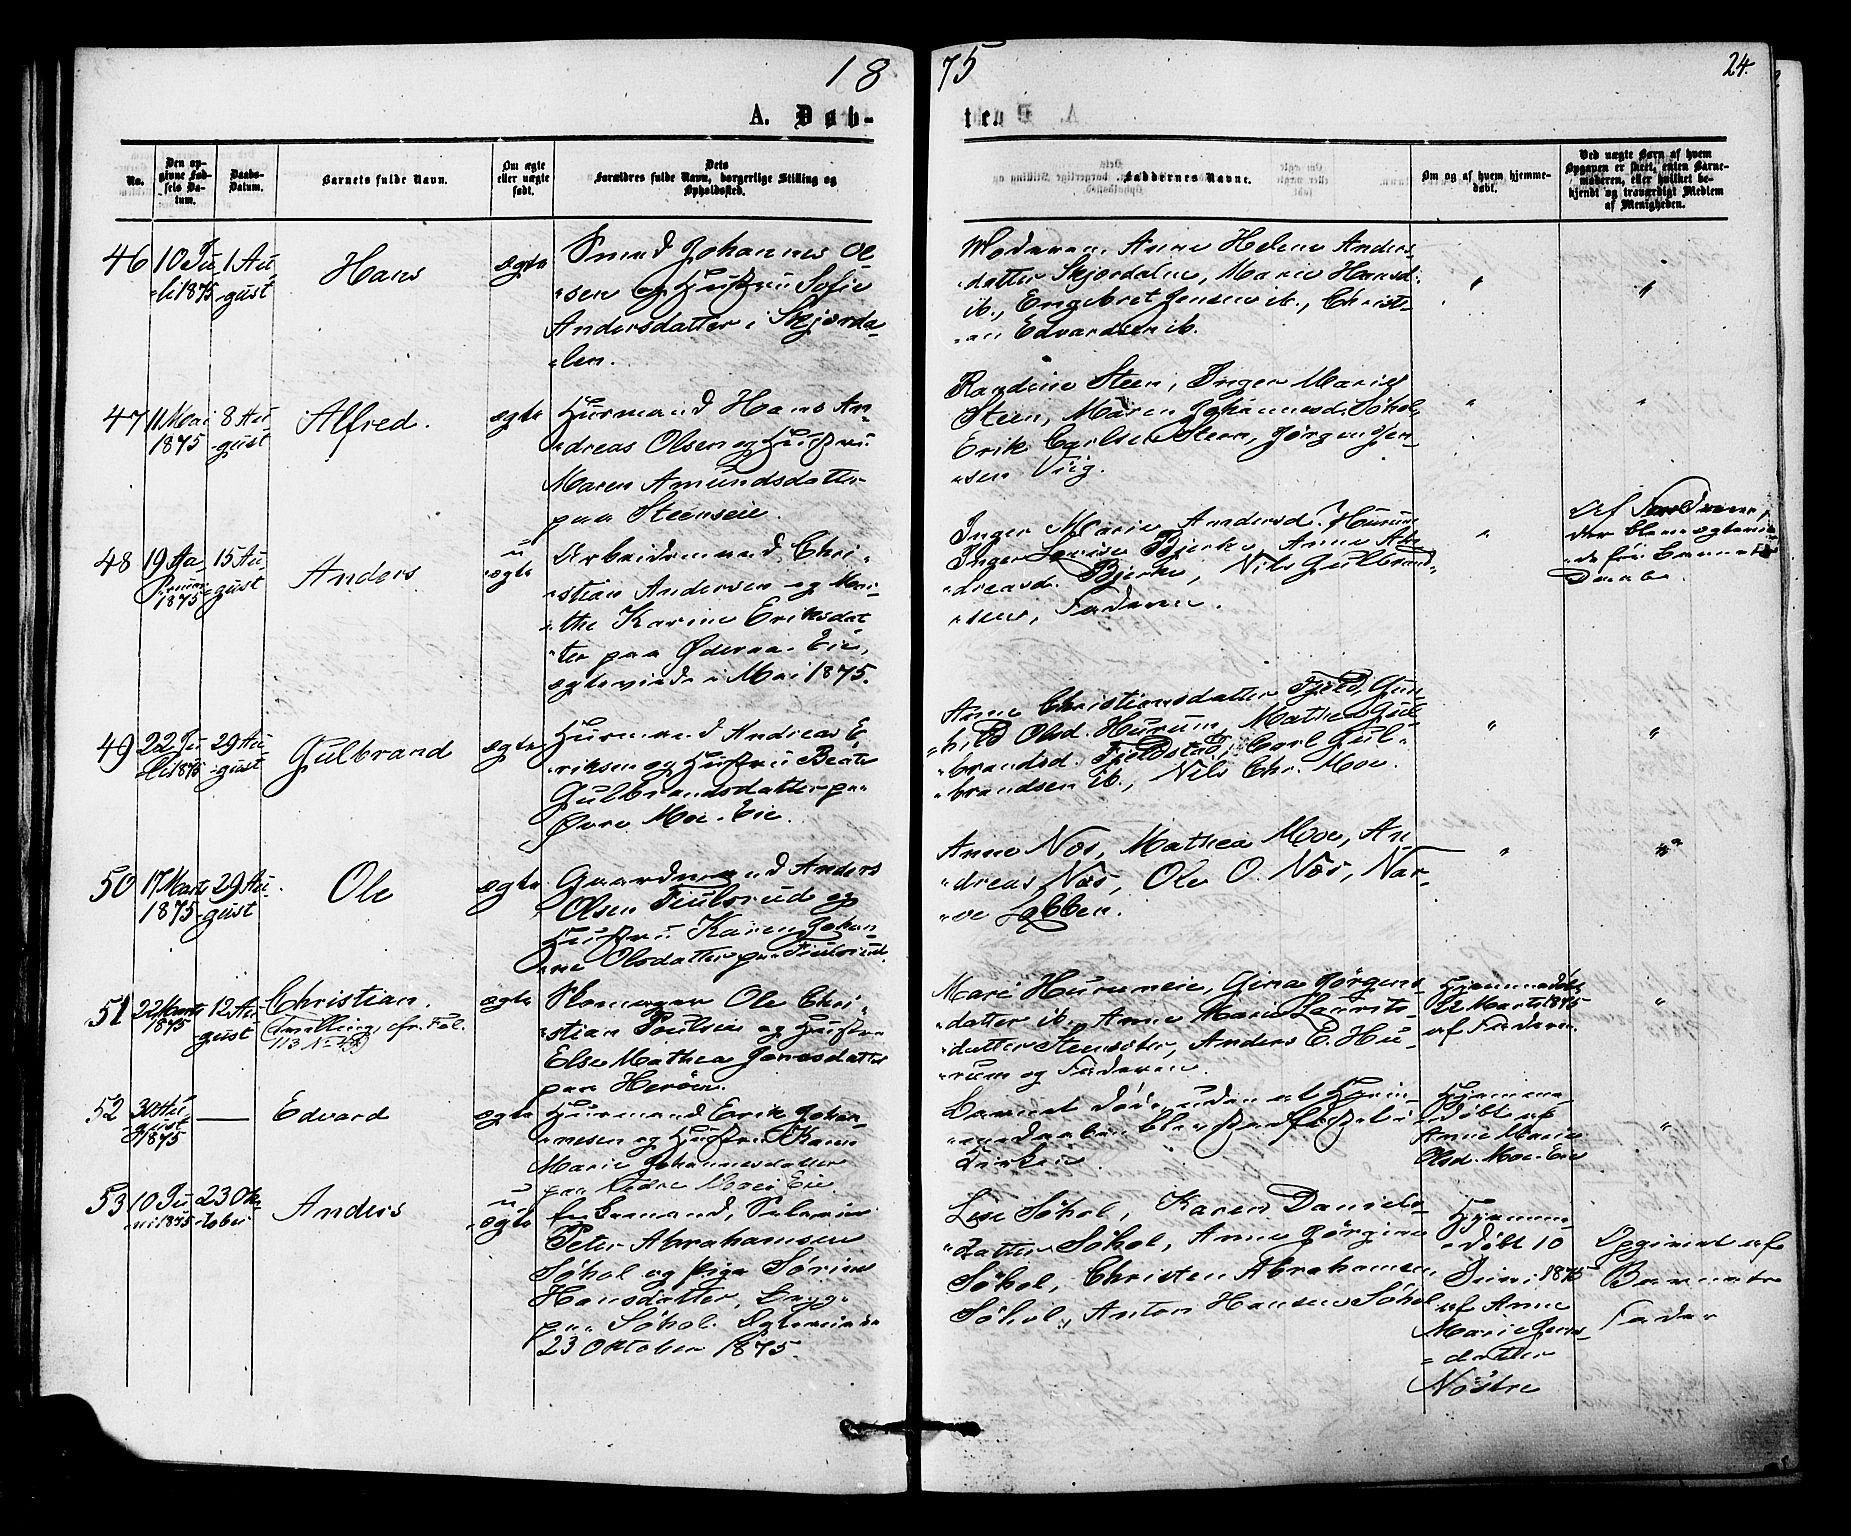 18 75
24.
A. Døb-
ten
No.
Den op-
givne Fød-
sels Da-
tum.
Daabs-
Datum.
Barnets fulde Navn.
Om ægte
eller uægte
født.
Dets
Forældres fulde Navn, borgerlige Stilling og
Opholdssted.
Faddernes Navne.
Om og af hvem hjemme-
døbt.
Ved uægte Børn af hvem
Opgaven er skeet, enten Barne-
moderen, eller hvilket be-
kjendt og troværdigt Medlem
af Menigheden.
46
10 Ju-
li 1875
1 Au-
gust
Hans
ægte
Smed Johannes Ol-
sen og Hustru Sofie
Andersdatter i Skjorda-
len.
Moderen, Anne Helene Anders-
datter Skjordalen, Marie Hansd.
ib., Engebret Jensen ib., Christi-
an Edvardsen ib.
"
"
47
11 Mai
1875
8 Au-
gust
Alfred.
ægte
Husmand Hans An-
dreas Olsen og Hustru
Maren Amundsdatter
paa Steenseie.
Randine Steen, Inger Marie
Steen, Maren Johannesd. Søhol,
Erik Carlsen Steen, Jørgen Jen-
sen Viig.
"
"
48
19 Ja-
nuar
1875
15 Au-
gust
Anders
u-
ægte
Arbeidsmand Chri-
stian Andersen og Mari-
the Karine Eriksdat-
ter paa Øderaa-Eie,
ægteviede i Mai 1875.
Inger Marie Andersd. Hurum
Inger Lovise Bjerke, Anne An-
dreasd. Bjerke, Nils Gulbrand-
sen, Faderen.
"
Af Forældrene,
der bleve ægtevie-
de før Barnets
Daab.
49
22 Ju-
li 1875
29 Au-
gust
Gulbrand
ægte
Husmand Andreas E-
riksen og Hustru Beate
Gulbrandsdatter paa
Øvre Moe-Eie.
Anne Christiansdatter Fjeld, Gun-
hild Olsd. Hurum, Mathea Gul-
brandsd. Fjeldstad, Carl Gul-
brandsen ib., Nils Chr. Moe.
"
"
50
17 Marts
1875
29 Au-
gust
Ole
ægte
Gaardmand Anders
Olsen Fiulsrud og
Hustru Karen Johan-
ne Olsdatter paa Fiulsrud.
Anne Næs, Mathea Moe, An-
dreas Næs, Ole O. Næs, Nar-
ve Labben.
"
"
51
22 Marts
1875
12 Au-
gust
Christian.
(Tvilling, cfr. Fol.
113 No
ægte
Skomager Ole Chri-
stian Poulsen og Hustru
Else Mathea Jonasdatter
paa Herøen.
Mari Hurumeie, Gina Jørgens-
datter ib., Anne Marie Laurits-
datter Steensæter, Anders E. Hu-
rum og Faderen.
Hjemmedøbt
22 Marts 1875
af Faderen.
"
52
30 Au-
gust
1875
—
Edvard
ægte
Husmand Erik Johan-
nesen og Hustru Karen
Marie Johannesdatter
paa Nedre Moe Eie.
Barnet døde uden at Hjem-
medaaben blev stadfæstet i
Kirken.
Hjemme-
døbt af
Anne Marie
Olsd. Moe-Eie
"
53
10 Ju-
ni 1875
23 Ok-
tober
Anders
u-
ægte
Peter Abrahamsen
Søhol og Pige Sørine
Hansdatter, begge
paa Søhol. Ægteviede
23 Oktober 1875.
Lise Søhol, Karen Daniels-
datter Søhol, Anne Jørgine
Søhol, Christen Abrahamsen
Søhol, Anton Hansen Søhol
Hjemme-
døbt 10
Juni 1875
af Anne
Marie Jens-
datter
Næstre
Opgivet af
Barnets
Fader